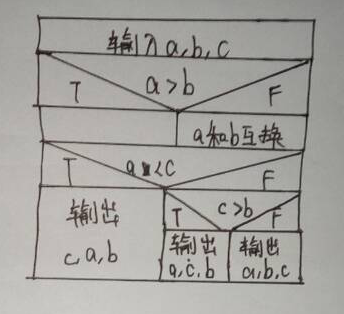 输入a,b,c
T a>b F
a和b互换
T a<c F
输出
c,a,b
T c>b F
输出
a,c,b
输出
a,b,c